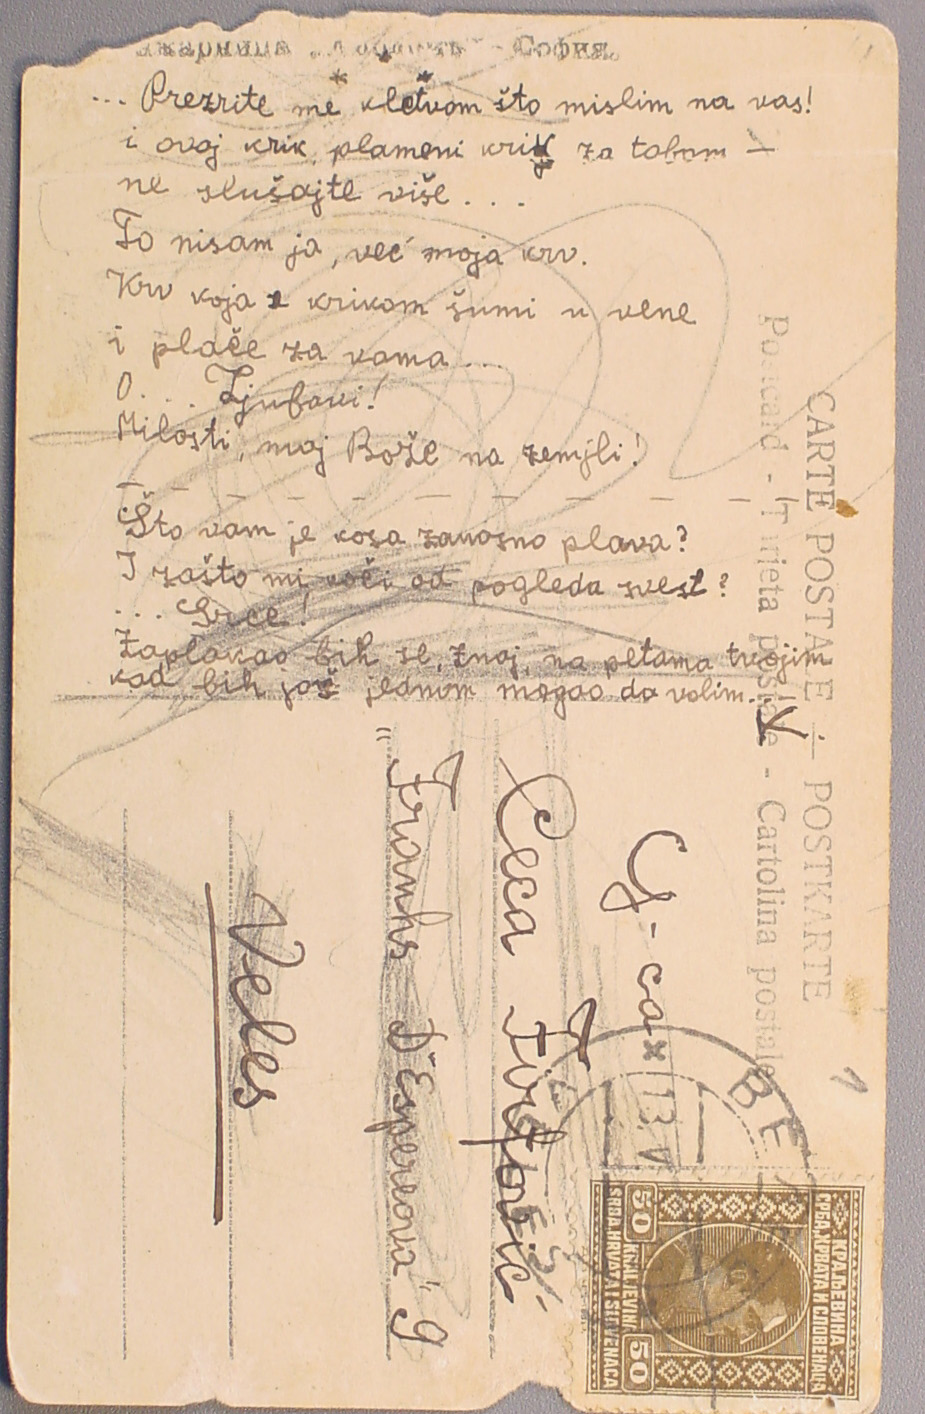 София
... Prezrite me kletvom što mislim na vas!
i ovaj krik, plameni krik za tobom —
ne slušajte više ...
To nisam ja, već moja krv.
Krv koja s krikom šumi u vene
i plače za vama ...
O ... Ljubavi!
Milosti, moj Bože na zemlji!
— — — — — — — — — —
Što vam je kosa zanosno plava?
I zašto mi, oči od pogleda svest?
... Srce!
Zaplakao bih se, znaj, na petama tvojim
kad bih još jednom mogao da volim. V
CARTE POSTALE — POSTKARTE
Postcard - - Cartolina postale
G-ca
Ceca
"Franhs D'Espereova" 9
Veles
13 V
КРАЉЕВИНА
СРБА, ХРВАТА И СЛОВЕНАЦА
50
50
KRALJEVINA
SRBA HRVATA I SLOVENACA